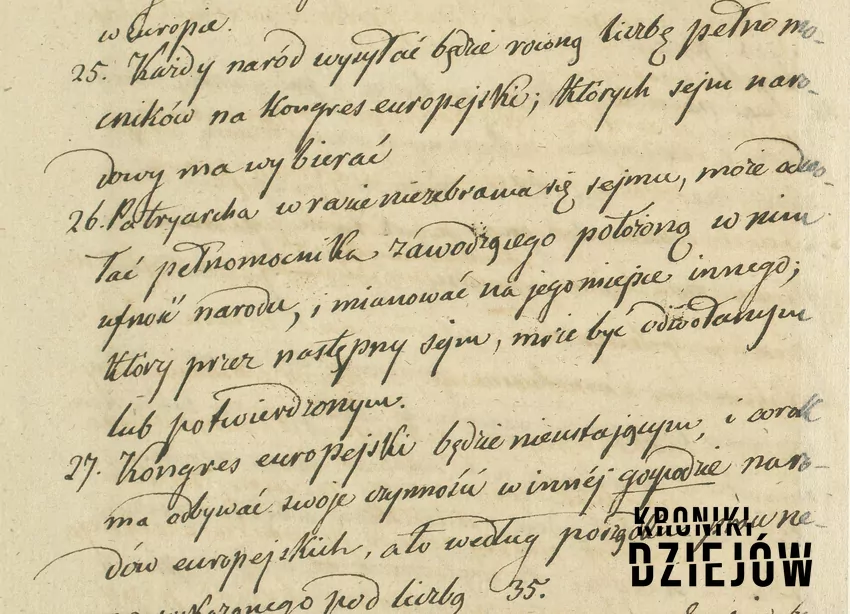 w Europie.
25. Każdy naród wysyłać będzie rowną liczbę pełnomo-
cników na Kongres europejski; których sejm naro-
dowy ma wybierać
26. Patryarcha w razie niezebrania się sejmu, może odwo-
łać pełnomocnika zawodzącego położoną w nim
ufność narodu, i mianować na jego miejsce innego;
który przez następny sejm, może być odwołanym
lub potwierdzonym.
27. Kongres europejski będzie nieustającym, i corok
ma odbywać swoje czynności w innéj gospodzie naro-
dów europejskich, a to według
pod liczbą 35.
KRONIKI
DZIEJÓW